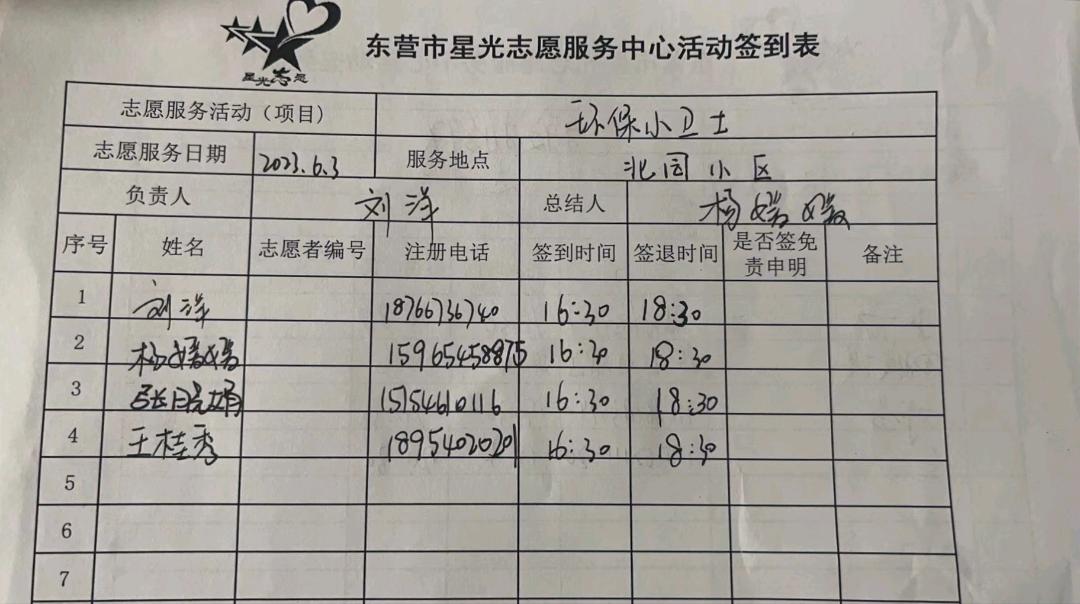 星光志愿
东营市星光志愿服务中心活动签到表
志愿服务活动（项目） 环保小卫士
志愿服务日期 2023.6.3 服务地点 北园小区
负责人 刘洋 总结人 杨嫱嫱
序号 姓名 志愿者编号 注册电话 签到时间 签退时间 是否签免责申明 备注
1 刘洋 18766736740 16:30 18:30
2 杨嫱嫱 15965458875 16:30 18:30
3 张晓娟 15154610116 16:30 18:30
4 王桂秀 18954020201 16:30 18:30
5
6
7